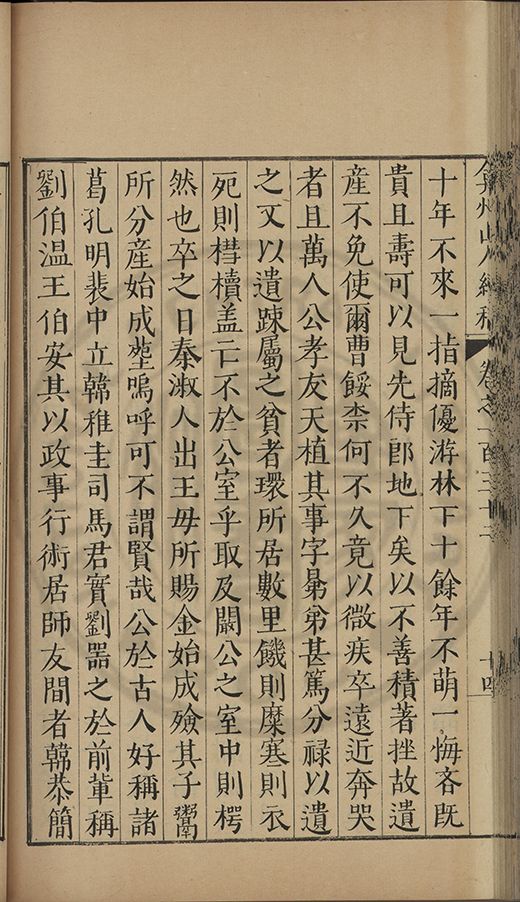 弇州山人續稿 卷之一百三十二 十四
十年不來一指摘優游林下十餘年不萌一悔吝既
貴且壽可以見先侍郎地下矣以不善積著挫故遺
產不免使爾曹餒柰何不久竟以微疾卒遠近奔哭
者且萬人公孝友天植其事字晜弟甚篤分祿以遺
之又以遺踈屬之貧者環所居數里饑則糜寒則衣
死則槥櫝盖亡不於公室乎取及闞公之室中則枵
然也卒之日秦淑人出王毋所賜金始成殮其子鬻
所分產始成塟嗚呼可不謂賢哉公於古人好稱諸
葛孔明裴中立韓稚圭司馬君實劉器之於前輩稱
劉伯温王伯安其以政事行術居師友間者韓恭簡